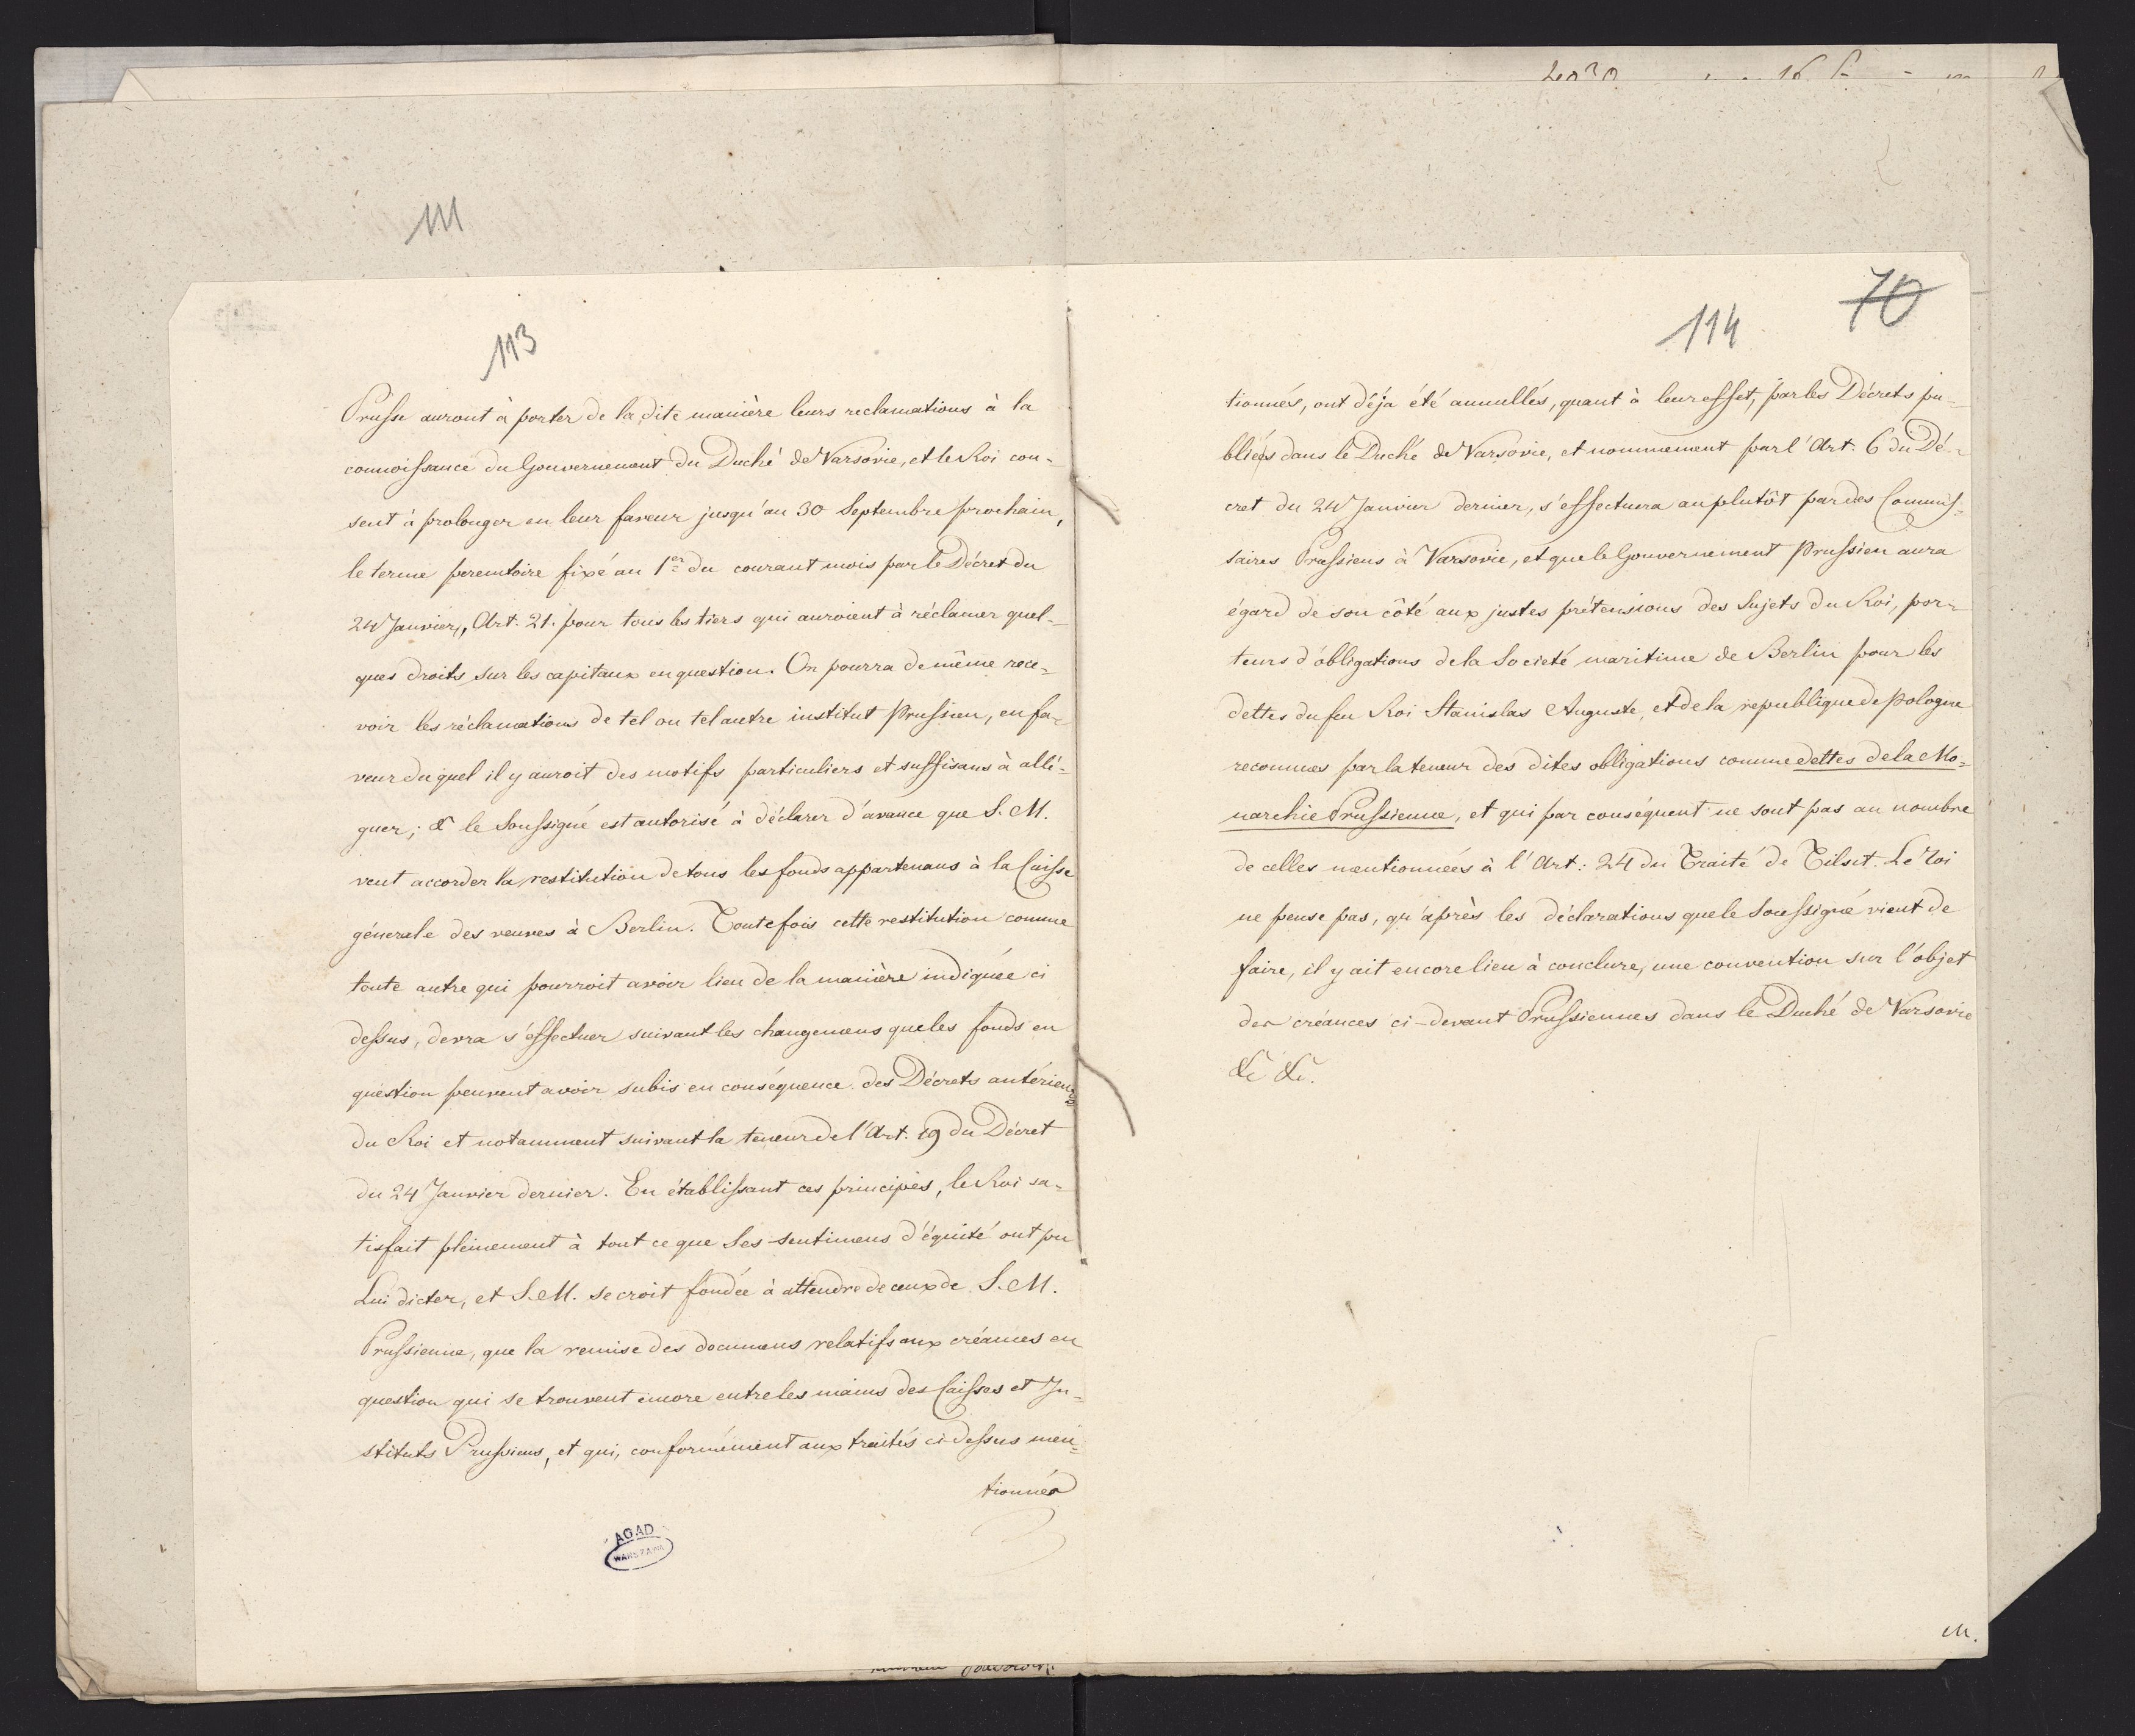 111
113
Prusse auront à porter de la dite manière leurs reclamations à la
connoissance du Gouvernement du Duché de Varsovie, et le Roi con-
sent à prolonger en leur faveur jusqu'au 30 Septembre prochain,
le terme peremtoire fixé au 1er du courant mois par le Décret du
24 Janvier, Art. 21. pour tous les tiers qui auroient à réclamer quel-
ques droits sur les capitaux en question. On pourra de même rece-
voir les réclamations de tel ou tel autre institut Prussien, en fa-
veur du quel il y auroit des motifs particuliers et suffisans à allé-
guer; & le Soussigné est autorisé à déclarer d'avance que S. M.
veut accorder la restitution de tous les fonds appartenans à la Caisse
génerale des veuves à Berlin. Toutefois cette restitution comme
toute autre qui pourroit avoir lieu de la manière indiquée ci
dessus, devra s'effectuer suivant les changemens que les fonds en
question peuvent avoir subis en conséquence des Décrets antérieurs
du Roi et notamment suivant la teneur de l'Art. 19 du Décret
du 24 Janvier dernier. En établissant ces principes, le Roi sa-
tisfait pleinement à tout ce que Ses sentimens d'équité ont pu
Lui dicter, et S. M. se croit fondée à attendre de ceux de S. M.
Prussienne, que la remise des documens relatifs aux créances en
question qui se trouvent encore entre les mains des Caisses et In-
stituts Prussiens, et qui, conformément aux traités ci dessus men-
tionnés
AGAD
WARSZAWA
70
114
tionnés, ont déja été annullés, quant à leur effet, par les Décrets pu-
bliés dans le Duché de Varsovie, et nommement par l'Art. 6 du Dé-
cret du 24 Janvier dernier, s'effectuera au plutôt par des Commis-
saires Prussiens à Varsovie, et que le Gouvernement Prussien aura
égard de son côté aux justes prétensions des Sujets du Roi, por-
teurs d'obligations de la Societé maritime de Berlin pour les
dettes du feu Roi Stanislas Auguste, et de la republique de Pologne
reconnues par la teneur des dites obligations comme dettes de la Mo-
narchie Prussienne, et qui par conséquent ne sont pas au nombre
de celles mentionnées à l'Art: 24 du Traité de Tilsit. Le Roi
ne pense pas, qu'après les déclarations que le Soussigné vient de
faire, il y ait encore lieu à conclure, une convention sur l'objet
des créances ci-devant Prussiennes dans le Duché de Varsovie
&c &c.
M.